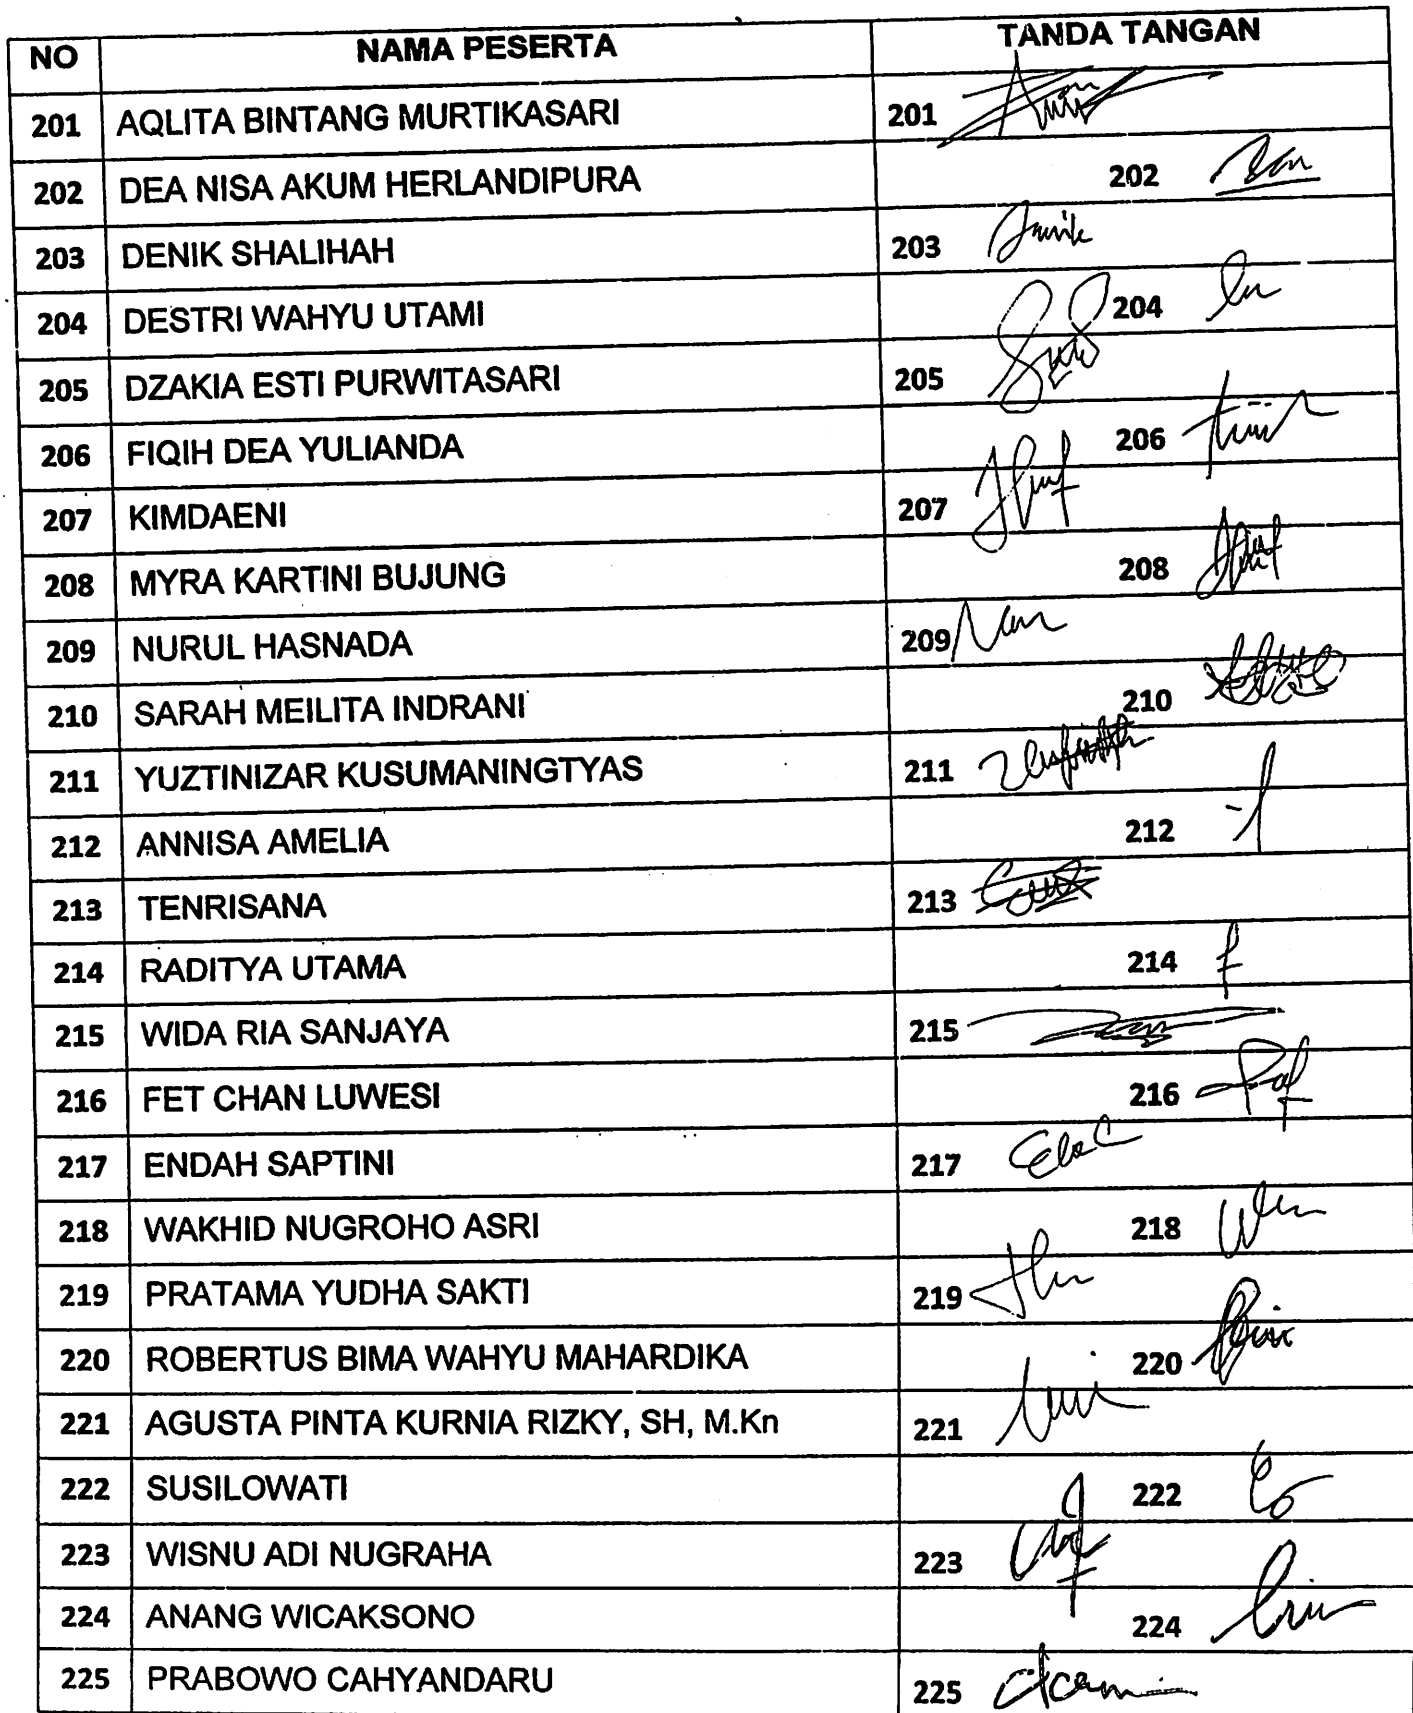 NO NAMA PESERTA TANDA TANGAN
201 AQLITA BINTANG MURTIKASARI 201
202 DEA NISA AKUM HERLANDIPURA 202
203 DENIK SHALIHAH 203
204 DESTRI WAHYU UTAMI 204
205 DZAKIA ESTI PURWITASARI 205
206 FIQIH DEA YULIANDA 206
207 KIMDAENI 207
208 MYRA KARTINI BUJUNG 208
209 NURUL HASNADA 209
210 SARAH MEILITA INDRANI 210
211 YUZTINIZAR KUSUMANINGTYAS 211
212 ANNISA AMELIA 212
213 TENRISANA 213
214 RADITYA UTAMA 214
215 WIDA RIA SANJAYA 215
216 FET CHAN LUWESI 216
217 ENDAH SAPTINI 217
218 WAKHID NUGROHO ASRI 218
219 PRATAMA YUDHA SAKTI 219
220 ROBERTUS BIMA WAHYU MAHARDIKA 220
221 AGUSTA PINTA KURNIA RIZKY, SH, M.Kn 221
222 SUSILOWATI 222
223 WISNU ADI NUGRAHA 223
224 ANANG WICAKSONO 224
225 PRABOWO CAHYANDARU 225